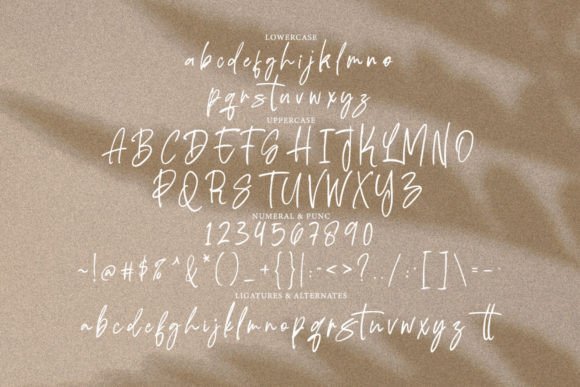 LOWERCASE
abcdefghijklmno
pqrstuvwxyz
UPPERCASE
ABCDEFGHIJKLMNO
PQRSTUVWXYZ
NUMERAL & PUNC
1234567890
~!@#$%^&*()_+{}|:"<>?../:"[]\=-
LIGATURES & ALTERNATES
abcdefghijklmnopqrstuvwxyz tt